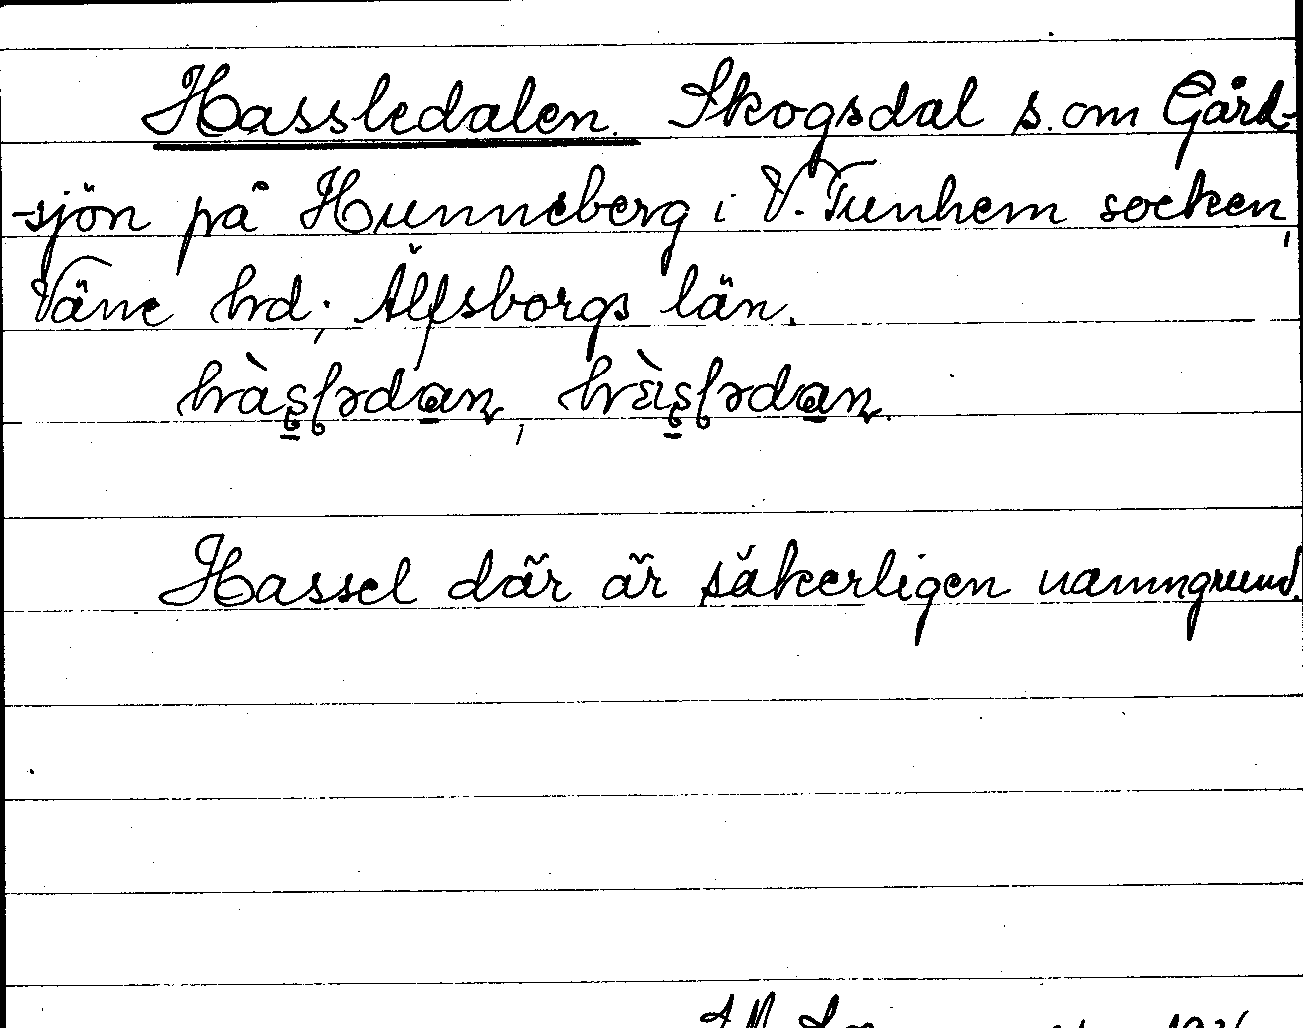 Hassledalen. Skogsdal s. om Gård-
-sjön på Hunneberg i V. Tunhem socken,
Väne hd; Älfsborgs län.
Hassel där är säkerligen namngrund.